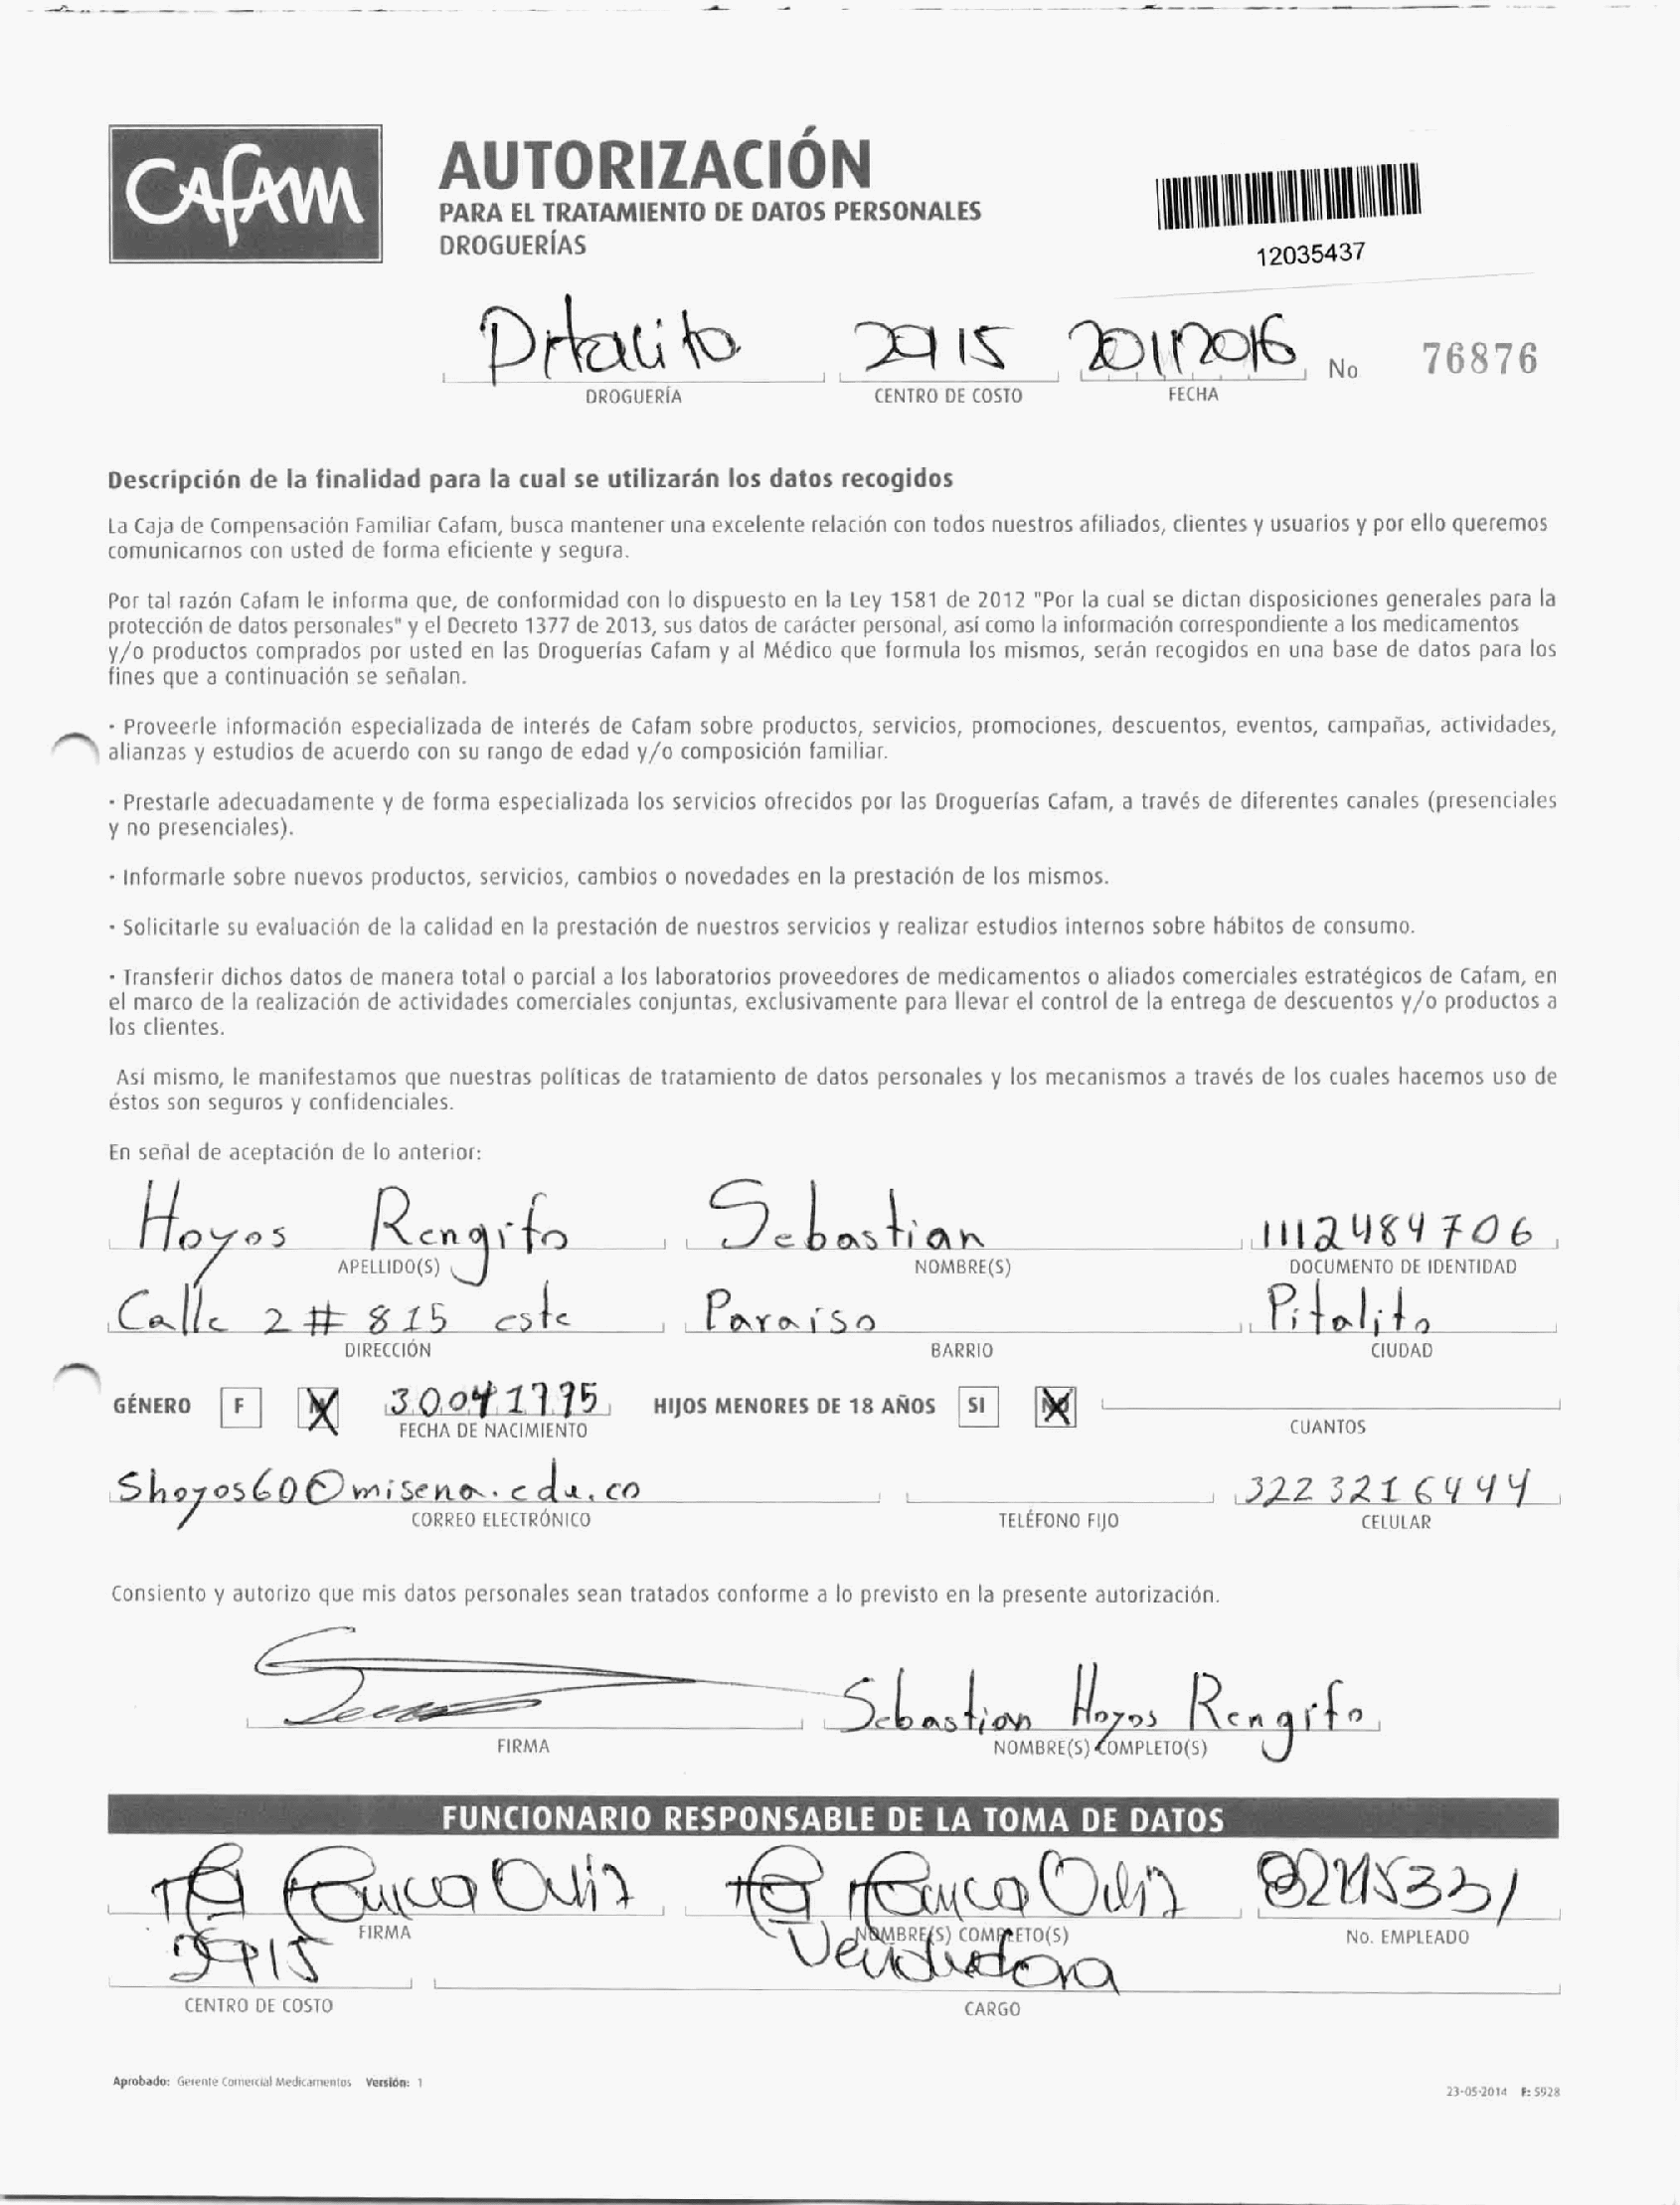 CAFAM
AUTORIZACIÓN
PARA EL TRATAMIENTO DE DATOS PERSONALES
DROGUERÍAS
12035437
Pitalito 2915 20112016 No. 76876
DROGUERÍA CENTRO DE COSTO FECHA
Descripción de la finalidad para la cual se utilizarán los datos recogidos
La Caja de Compensación Familiar Cafam, busca mantener una excelente relación con todos nuestros afiliados, clientes y usuarios y por ello queremos
comunicarnos con usted de forma eficiente y segura.
Por tal razón Cafam le informa que, de conformidad con lo dispuesto en la Ley 1581 de 2012 "Por la cual se dictan disposiciones generales para la
protección de datos personales" y el Decreto 1377 de 2013, sus datos de carácter personal, así como la información correspondiente a los medicamentos
y/o productos comprados por usted en las Droguerías Cafam y al Médico que formula los mismos, serán recogidos en una base de datos para los
fines que a continuación se señalan.
· Proveerle información especializada de interés de Cafam sobre productos, servicios, promociones, descuentos, eventos, campañas, actividades,
alianzas y estudios de acuerdo con su rango de edad y/o composición familiar.
· Prestarle adecuadamente y de forma especializada los servicios ofrecidos por las Droguerías Cafam, a través de diferentes canales (presenciales
y no presenciales).
· Informarle sobre nuevos productos, servicios, cambios o novedades en la prestación de los mismos.
· Solicitarle su evaluación de la calidad en la prestación de nuestros servicios y realizar estudios internos sobre hábitos de consumo.
· Transferir dichos datos de manera total o parcial a los laboratorios proveedores de medicamentos o aliados comerciales estratégicos de Cafam, en
el marco de la realización de actividades comerciales conjuntas, exclusivamente para llevar el control de la entrega de descuentos y/o productos a
los clientes.
Así mismo, le manifestamos que nuestras políticas de tratamiento de datos personales y los mecanismos a través de los cuales hacemos uso de
éstos son seguros y confidenciales.
En señal de aceptación de lo anterior:
Hoyos Rengifo Sebastian 1112484706
APELLIDO(S) NOMBRE(S) DOCUMENTO DE IDENTIDAD
Calle 2 # 815 este Paraiso Pitalito
DIRECCIÓN BARRIO CIUDAD
GÉNERO F X 30041995 HIJOS MENORES DE 18 AÑOS SI X
FECHA DE NACIMIENTO CUANTOS
Shoyos60@misena.edu.co 3223216444
CORREO ELECTRÓNICO TELÉFONO FIJO CELULAR
Consiento y autorizo que mis datos personales sean tratados conforme a lo previsto en la presente autorización.
Sebastian Hoyos Rengifo
FIRMA NOMBRE(S) COMPLETO(S)
FUNCIONARIO RESPONSABLE DE LA TOMA DE DATOS
FIRMA NOMBRE(S) COMPLETO(S) No. EMPLEADO
2915 Vendedora
CENTRO DE COSTO CARGO
Aprobado: Gerente Comercial Medicamentos Versión: 1
23-05-2014 F: 5928